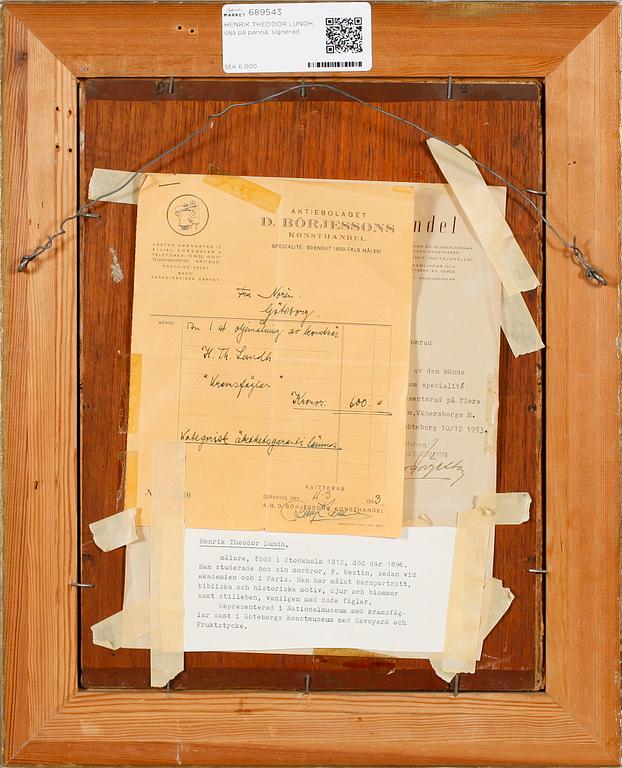 MARKET 689543
HENRIK THEODOR LUNDH,
olja på pannå, signerad.
SEK 6 000
AKTIEBOLAGET
D. BÖRJESSONS
KONSTHANDEL
SPECIALITÉ: SVENSKT 1800-TALS MÅLERI
VÄSTRA HAMNGATAN
FILIAL KOPENHAMN
POSTGIRO
BANK
SKANDINAVISKA BANKEN
Fru Norén.
Göteborg.
MÄRKE
1 st. oljemålning av konstnär
H. Th. Lundh
"Kramsfåglar"
Kronor: 600.=
Kategorisk äkthetsgaranti lämnas.
KVITTERAS
Göteborg den 11-3 1953
A.-B. D. BÖRJESSONS KONSTHANDEL
ndel
av den kände
om specialité
senterad på flera
m, Vänersborgs M.
öteborg 10/12 1953.
Henrik Theodor Lundh,
målare, född i Stockholm 1812, död där 1896.
Han studerade hos sin morbror, F. Westin, sedan vid
akademien och i Paris. Han har målat barnporträtt,
bibliska och historiska motiv, djur och blommor
samt stilleben, vanligen med döda fåglar.
Representerad i Nationalmuseum med kramsfåg-
lar samt i Göteborgs Konstmuseum med Savoyard och
Fruktstycke.